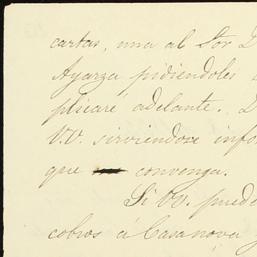 cartas, una al Sor D
Ayarza pidiendoles
plicare adelante.
V.V. sirviendose info
que convenga.
Si Vv. puede
cobros á Casanova